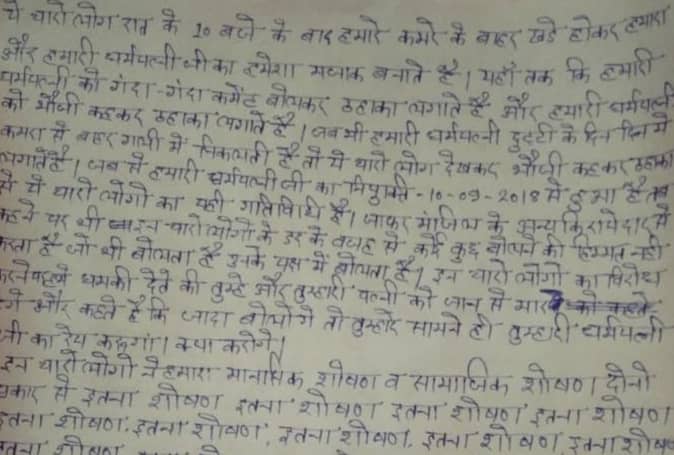 ये चारो लोग रात के 10 बजे के बाद हमारे कमरे के बाहर खडे होकर हमारा
और हमारी धर्मपत्नी जी का हमेशा मजाक बनाते है। यहाँ तक कि हमारी
धर्मपत्नी को गंदा-गंदा कमेंट बोलकर ठहाका लगाते है और हमारी धर्मपत्नी
को भौजी कहकर ठहाका लगाते है। जब भी हमारी धर्मपत्नी छुट्टी के दिन दिन मे
कमरा से बाहर गली में निकलती है तो ये चारो लोग देखकर भौजी कहकर ठहाका
लगाते है। जब से हमारी धर्मपत्नी जी का नियुक्ति-10-09-2018 से हुआ है तब
से ये चारो लोगो का यही गतिविधि है। जाफर मंजिल के अन्य किरायेदार से
कहने पर भी इन चारो लोगो के डर के वजह से कोई कुछ बोलने की हिम्मत नही
करता है जो भी बोलता है उनके पक्ष में बोलता है। इन चारो लोगो का विरोध
करने पर हमे धमकी देते की तुम्हे और तुम्हारी पत्नी को जान से मार
गे और कहते है कि जादा बोलोगे तो तुम्हारे सामने ही तुम्हारी धर्मपत्नी
जी का रेप करूगां। क्या करोगे।
इन चारो लोगो ने हमारा मानसिक शोषण व सामाजिक शोषण। दोनो
प्रकार से इतना शोषण इतना शोषण इतना शोषण इतना शोषण
इतना शोषण. इतना शोषण, इतना शोषण, इतना शोषण, इतना शोषण
इतना शोषण